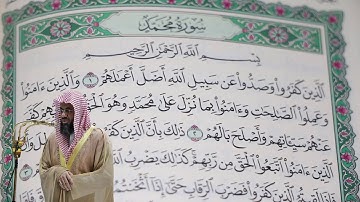 سُورَةُ مُحَمَّدٍ
بِسْمِ ٱللَّهِ ٱلرَّحْمَٰنِ ٱلرَّحِيمِ
ٱلَّذِينَ كَفَرُوا۟ وَصَدُّوا۟ عَن سَبِيلِ ٱللَّهِ أَضَلَّ أَعْمَٰلَهُمْ ۝١ وَٱلَّذِينَ ءَامَنُوا۟
وَعَمِلُوا۟ ٱلصَّٰلِحَٰتِ وَءَامَنُوا۟ بِمَا نُزِّلَ عَلَىٰ مُحَمَّدٍ وَهُوَ ٱلْحَقُّ مِن رَّبِّهِمْ كَفَّرَ
عَنْهُمْ سَيِّـَٔاتِهِمْ وَأَصْلَحَ بَالَهُمْ ۝٢ ذَٰلِكَ بِأَنَّ ٱلَّذِينَ كَفَرُوا۟
ٱلَّذِينَ ءَامَنُوا۟ ٱتَّبَعُوا۟ ٱلْحَقَّ مِن رَّبِّهِمْ كَذَٰلِكَ يَضْرِبُ ٱللَّهُ
ٱلَّذِينَ كَفَرُوا۟ فَضَرْبَ ٱلرِّقَابِ حَتَّىٰٓ إِذَآ أَثْخَنتُمُوهُمْ